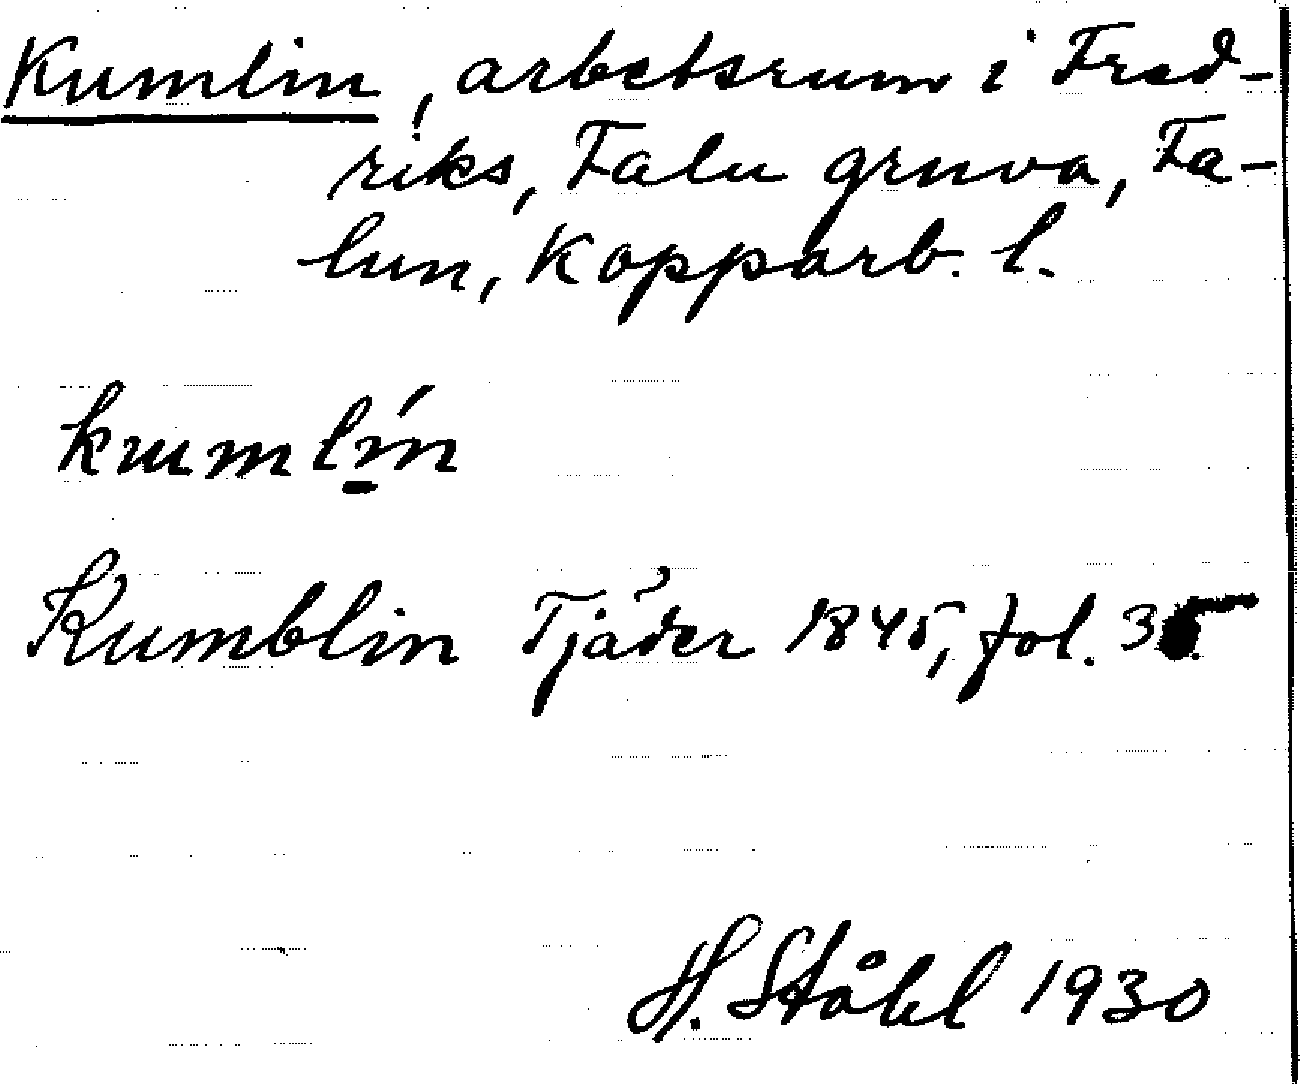 Kumlin, arbetsrum i Fred-
riks, Falu gruva, Fa-
lun, Kopparb. l.
kumlín
Kumblin Tjäder 1845, fol. 35
H. Ståhl 1930